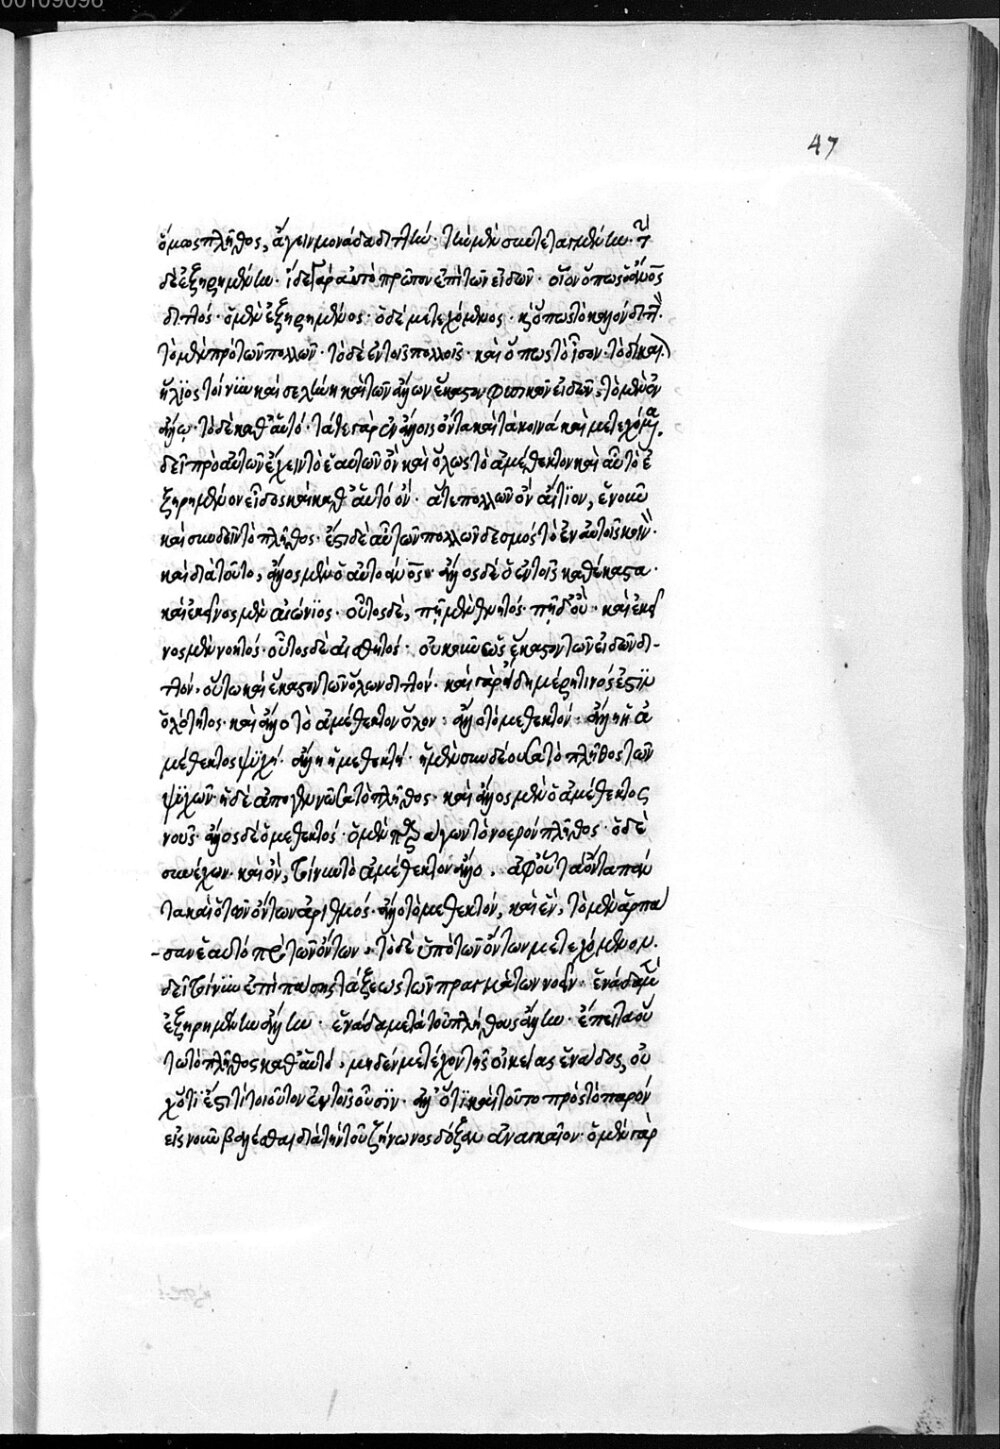 47
ὅμως πλῆθος, ἄγειν μονάδα διττήν· τὴν μὲν συντεταγμένην· τὴν
δὲ ἐξῃρημένην· ἴδε γὰρ αὐτὸ πρῶτον ἐπὶ τῶν εἰδῶν· οἷον ὅπως ὁ ἄνος
διττός· ὁ μὲν ἐξῃρημένος· ὁ δὲ μετεχόμενος· καὶ ὅπως τὸ καλὸν διττ·
τὸ μὲν πρὸ τῶν πολλῶν· τὸ δὲ ἐν τοῖς πολλοῖς· καὶ ὅπως τὸ ἴσον· τὸ δίκαι
ἥλιος τοίνυν καὶ σελήνη καὶ τῶν ἄλλων ἕκαστον φυσικῶν εἰδῶν· τὸ μὲν ἐν
ἄλλῳ· τὸ δὲ καθ' αὑτό· τά τε γὰρ ἐν ἄλλοις ὄντα καὶ τὰ κοινὰ καὶ μετεχόμενα
δεῖ πρὸ αὐτῶν ἔχειν τὸ ἑαυτῶν ὂν καὶ ὅλως τὸ ἀμέθεκτον καὶ αὖ τὸ ἐ
ξῃρημένον εἶδος καὶ καθ' αὑτὸ ὄν· ἅτε πολλῶν ὂν αἴτιον, ἑνοῦν
καὶ συνδεῖν τὸ πλῆθος· ἔστι δὲ αὖ τῶν πολλῶν δεσμὸς τὸ ἐν αὐτοῖς κοιν·
καὶ διὰ τοῦτο, ἄλλος μὲν ὁ αὐτοάνος· ἄλλος δὲ ὁ ἐν τοῖς καθέκαστα·
καὶ ἐκεῖνος μὲν αἰώνιος· οὗτος δὲ, πῇ μὲν θνητός· πῇ δ' οὔ· καὶ ἐκεῖ
νος μὲν νοητός· οὗτος δὲ αἰσθητός· οὐκοῦν ὡς ἕκαστον τῶν εἰδῶν δι-
τόν, οὕτω καὶ ἕκαστον τῶν ὅλων διττόν· καὶ γὰρ εἴδη μέρη τινός ἐστιν
ὁλότητος· καὶ ἄλλο τὸ ἀμέθεκτον ὅλον· ἄλλο τὸ μεθεκτόν· ἄλλη ἡ ἀ
μέθεκτος ψυχή· ἄλλη ἡ μεθεκτή· ἡ μὲν συνδέουσα τὸ πλῆθος τῶν
ψυχῶν· ἡ δὲ ἀπογεννῶσα τὸ πλῆθος· καὶ ἄλλος μὲν ὁ ἀμέθεκτος
νοῦς· ἄλλος δὲ ὁ μεθεκτός· ὁ μὲν παράγων τὸ νοερὸν πλῆθος· ὁ δὲ
συνέχων· καὶ ὄν, τοίνυν τὸ ἀμέθεκτον ἄλλο· ἀφ' οὗ τὰ ὄντα πάν
τα καὶ ὁ τῶν ὄντων ἀριθμός· ἄλλο τὸ μεθεκτόν, καὶ ἕν, τὸ μὲν ἁρπά
σαν ἑαυτὸ πρὸ τῶν ὄντων· τὸ δὲ ὑπὸ τῶν ὄντων μετεχόμενον·
δεῖ τοίνυν ἐπὶ πάσης τάξεως τῶν πραγμάτων νοεῖν· ἑνάδα μὲν
ἐξῃρημένην ἄλλην· ἑνάδα μετὰ τοῦ πλήθους ἄλλην· ἔπειτα αὖ
τὸ τὸ πλῆθος καθ' αὑτό, μηδὲν μετέχον τῆς οἰκείας ἑνάδος, οὐ
χ ὅτι ἔστι τὸ τοιοῦτον ἐν τοῖς οὖσιν· ἀλλ' ὅτι καὶ τοῦτο πρὸς τὸ παρὸν
εἰς νοῦν βαλέσθαι διὰ τὴν τοῦ ζήνωνος δόξαν ἀναγκαῖον· ὁ μὲν γὰρ